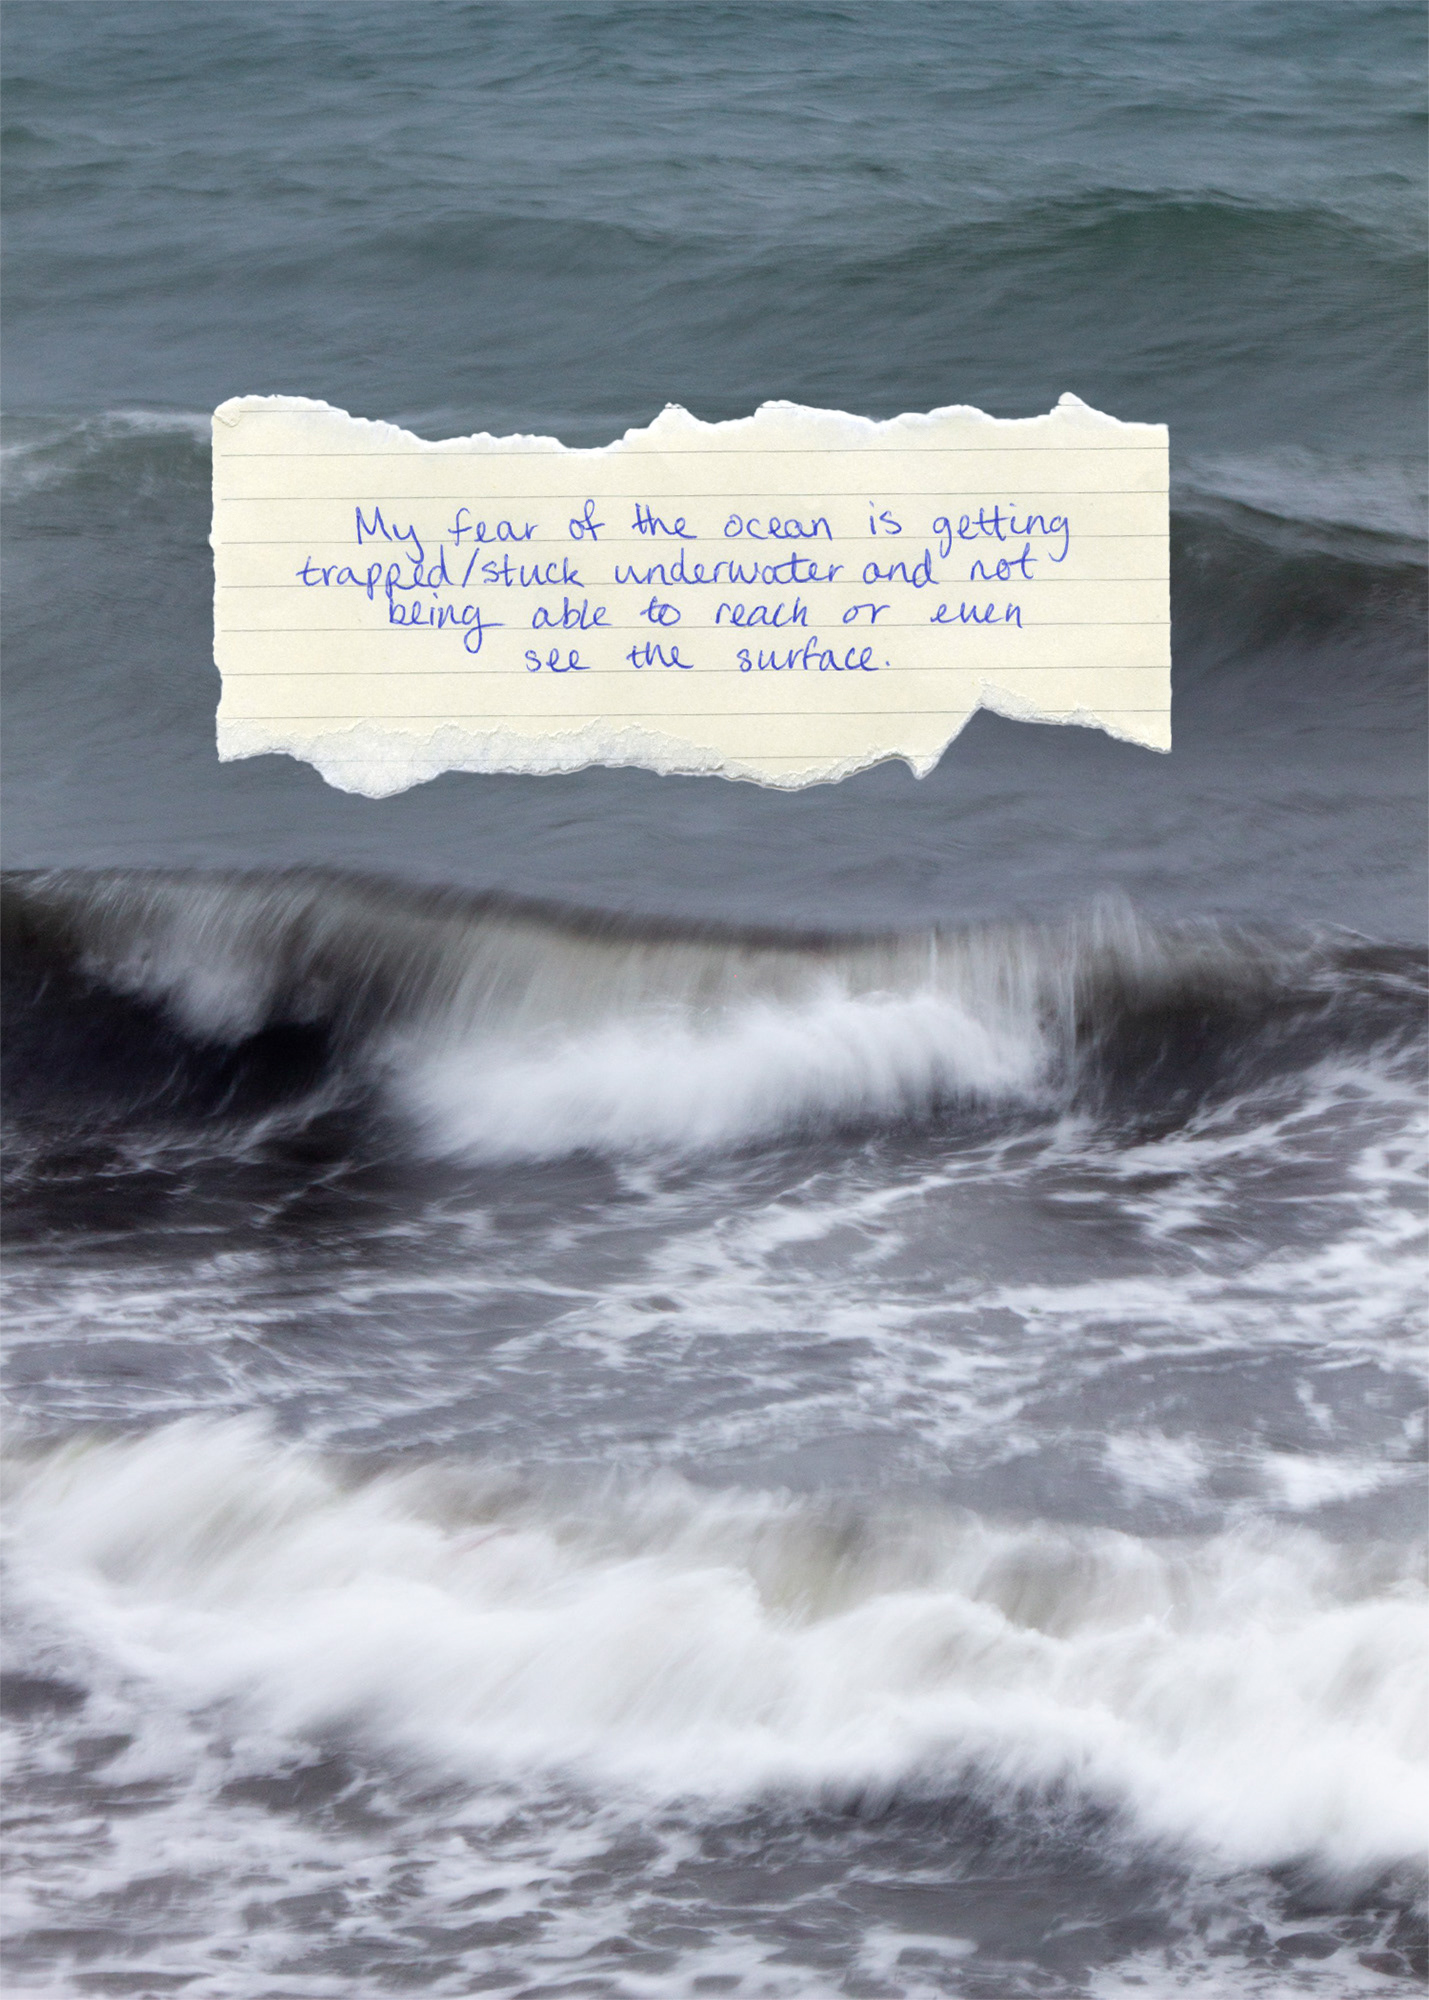 My fear of the ocean is getting
trapped/stuck underwater and not
being able to reach or even
see the surface.